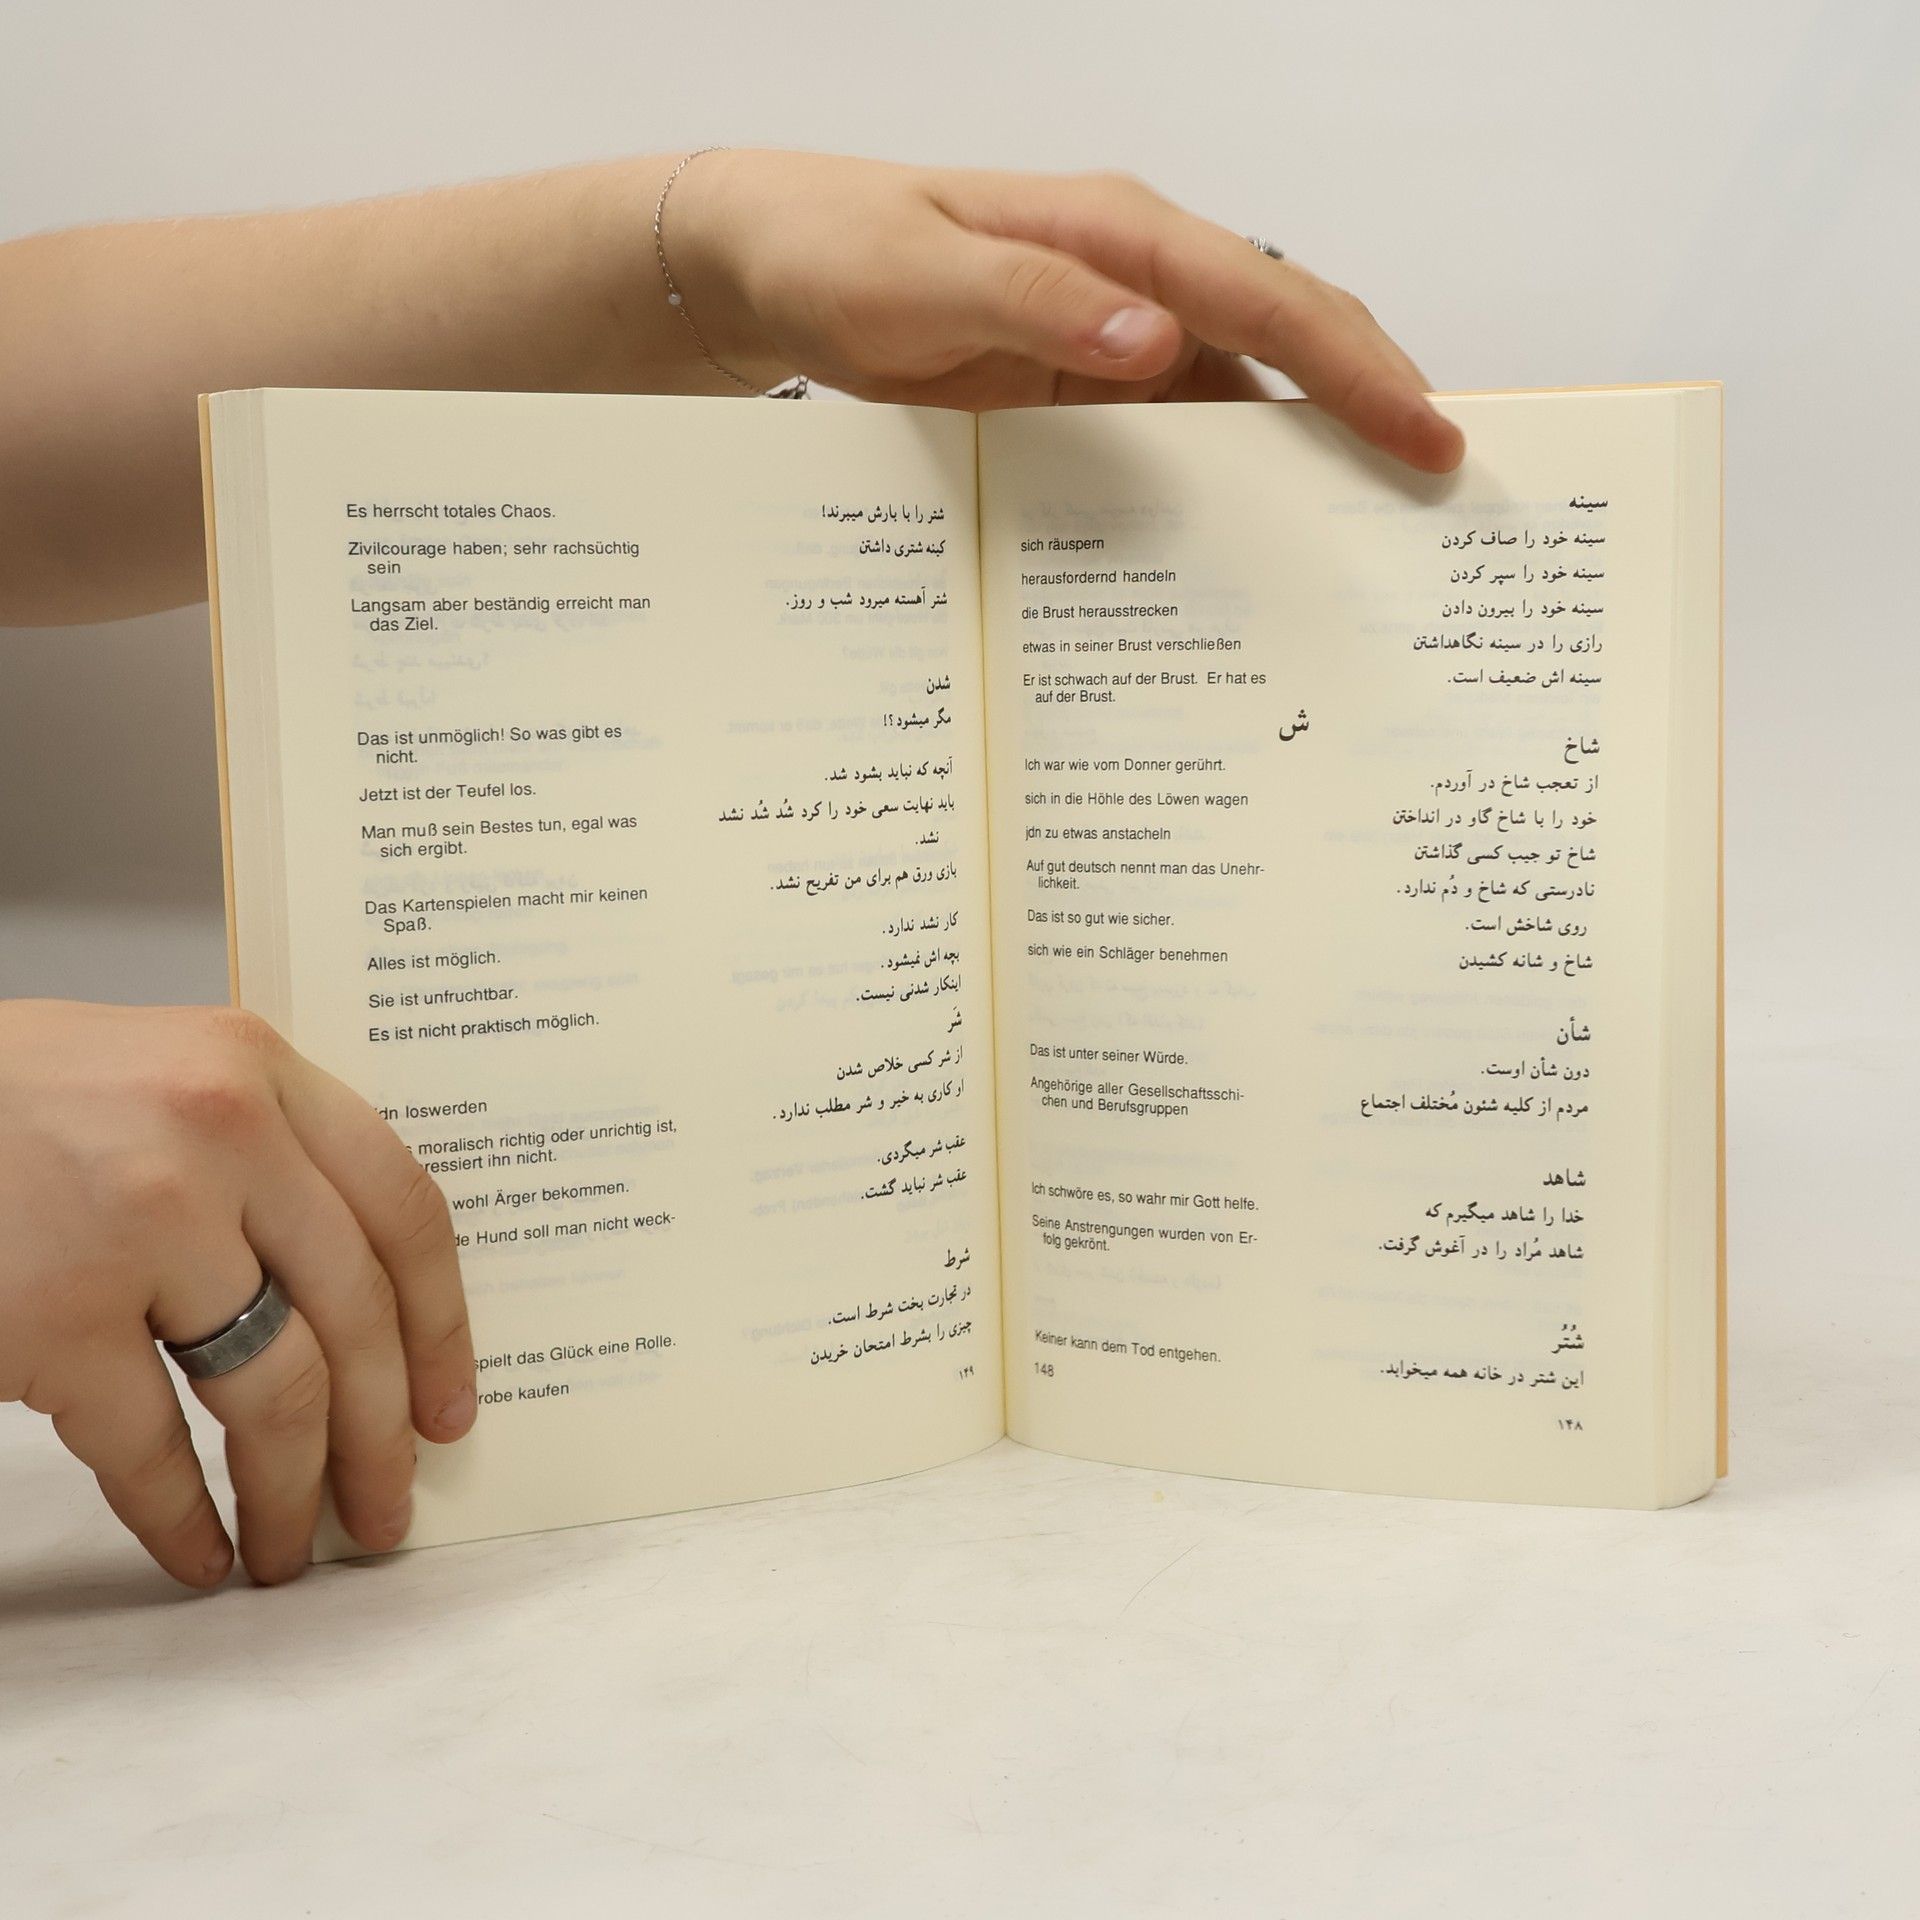 سینه
سینه خود را صاف کردن
sich räuspern
سینه خود را سپر کردن
herausfordernd handeln
سینه خود را بیرون دادن
die Brust herausstrecken
رازی را در سینه نگاهداشتن
etwas in seiner Brust verschließen
سینه اش ضعیف است.
Er ist schwach auf der Brust. Er hat es
auf der Brust.
ش
شاخ
از تعجب شاخ در آوردم.
Ich war wie vom Donner gerührt.
خود را با شاخ گاو در انداختن
sich in die Höhle des Löwen wagen
شاخ تو جیب کسی گذاشتن
jdn zu etwas anstacheln
نادرستی که شاخ و دُم ندارد.
Auf gut deutsch nennt man das Unehr-
lichkeit.
روی شاخش است.
Das ist so gut wie sicher.
شاخ و شانه کشیدن
sich wie ein Schläger benehmen
شأن
دون شأن اوست.
Das ist unter seiner Würde.
مردم از کلیه شئون مُختلف اجتماع
Angehörige aller Gesellschaftsschi-
chen und Berufsgruppen
شاهد
خدا را شاهد میگیرم که
Ich schwöre es, so wahr mir Gott helfe.
شاهد مُراد را در آغوش گرفت.
Seine Anstrengungen wurden von Er-
folg gekrönt.
شُتُر
این شتر در خانه همه میخوابد.
Keiner kann dem Tod entgehen.
148
۱۴۸
شتر را با بارش میبرند!
Es herrscht totales Chaos.
کینه شتری داشتن
Zivilcourage haben; sehr rachsüchtig
sein
شتر آهسته میرود شب و روز.
Langsam aber beständig erreicht man
das Ziel.
شدن
مگر میشود؟!
Das ist unmöglich! So was gibt es
nicht.
آنچه که نباید بشود شد.
Jetzt ist der Teufel los.
باید نهایت سعی خود را کرد شُد شُد نشد
نشد.
Man muß sein Bestes tun, egal was
sich ergibt.
بازی ورق هم برای من تفریح نشد.
Das Kartenspielen macht mir keinen
Spaß.
کار نشد ندارد.
Alles ist möglich.
بچه اش نمیشود.
Sie ist unfruchtbar.
اینکار شدنی نیست.
Es ist nicht praktisch möglich.
شَر
از شر کسی خلاص شدن
jdn loswerden
او کاری به خیر و شر مطلب ندارد.
moralisch richtig oder unrichtig ist,
ressiert ihn nicht.
عقب شر میگردی.
wohl Ärger bekommen.
عقب شر نباید گشت.
de Hund soll man nicht weck-
شرط
در تجارت بخت شرط است.
spielt das Glück eine Rolle.
چیزی را بشرط امتحان خریدن
robe kaufen
۱۴۹